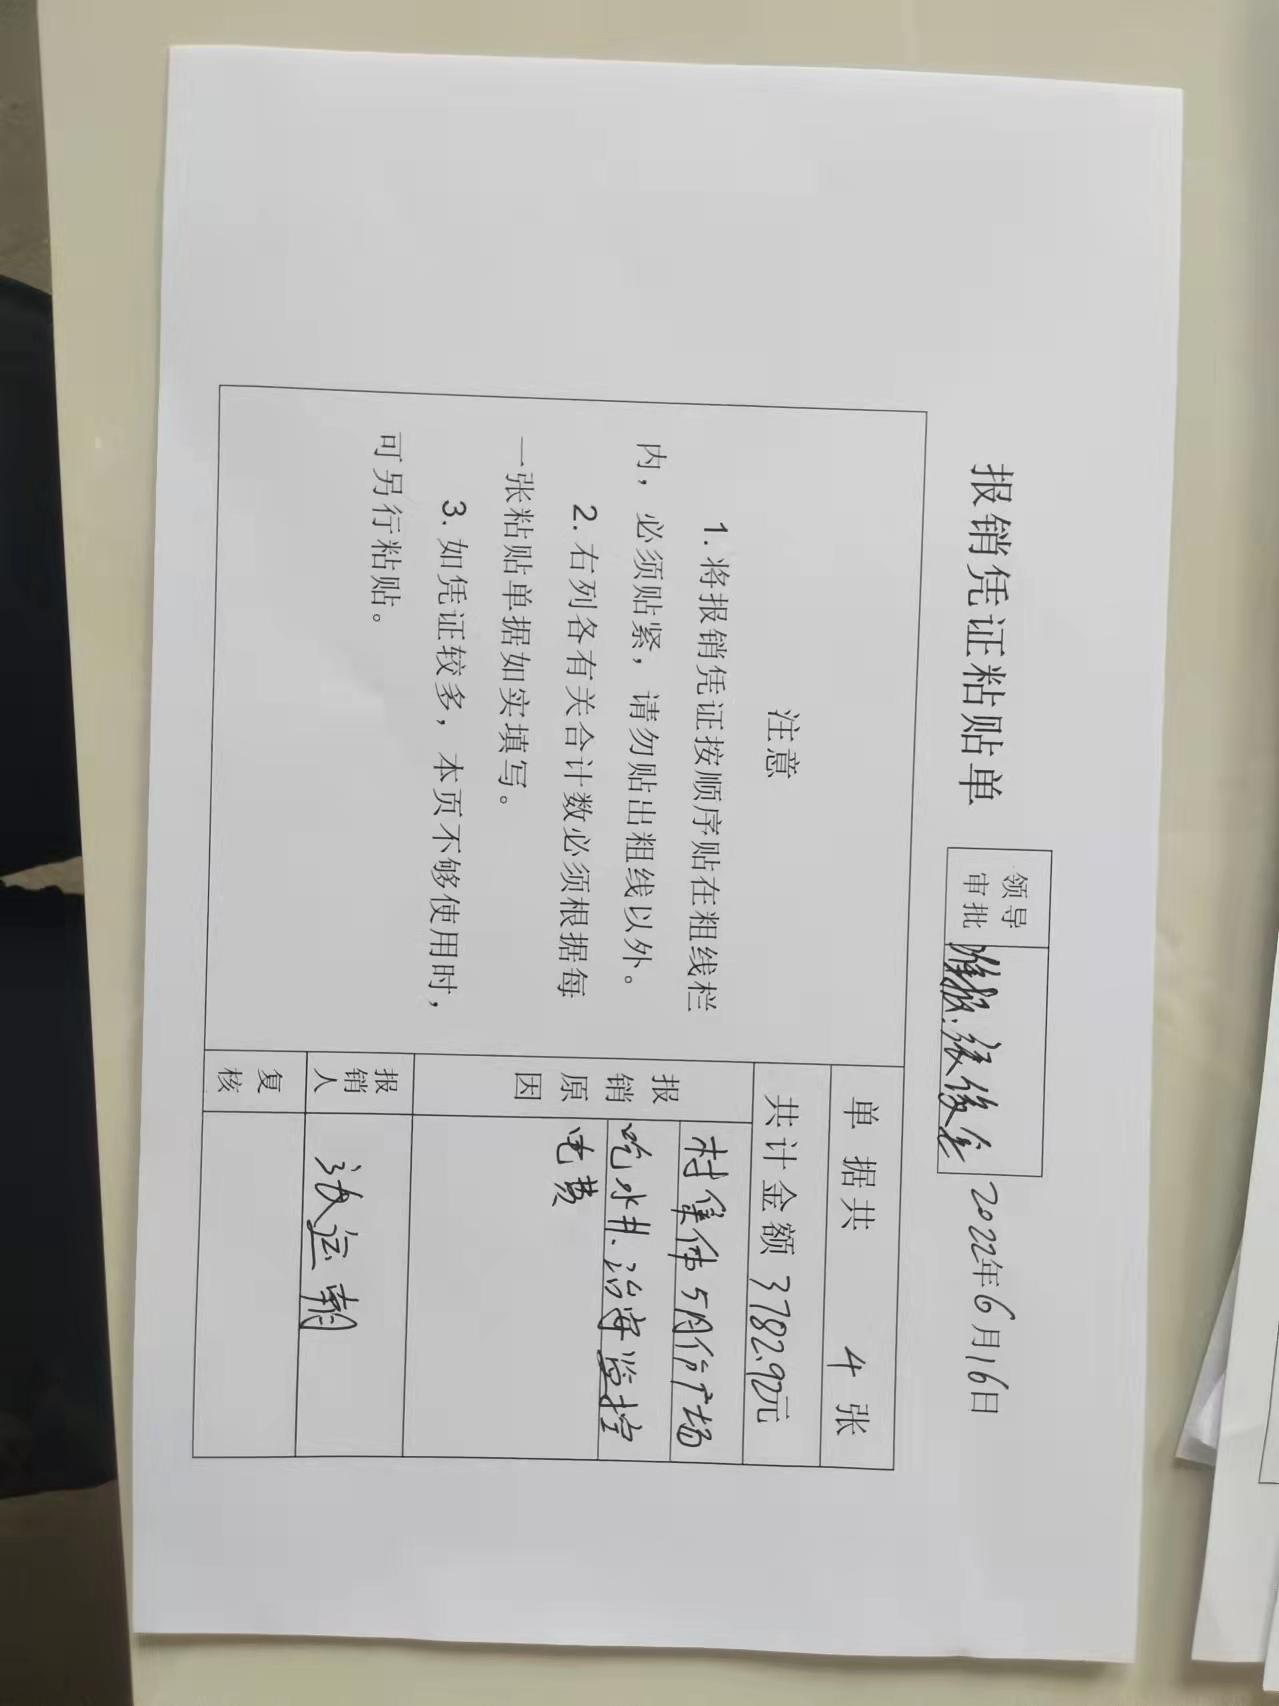 报销凭证粘贴单
领导
审批
准报.张俊金
2022年6月16日
注意
1. 将报销凭证按顺序贴在粗线栏
内，必须贴紧，请勿贴出粗线以外。
2. 右列各有关合计数必须根据每
一张粘贴单据如实填写。
3. 如凭证较多，本页不够使用时，
可另行粘贴。
单据共 4 张
共计金额 3782.92元
报销原因
村集体5月份广场
吃水井.治安监控
电费
报销人
张运朝
复核